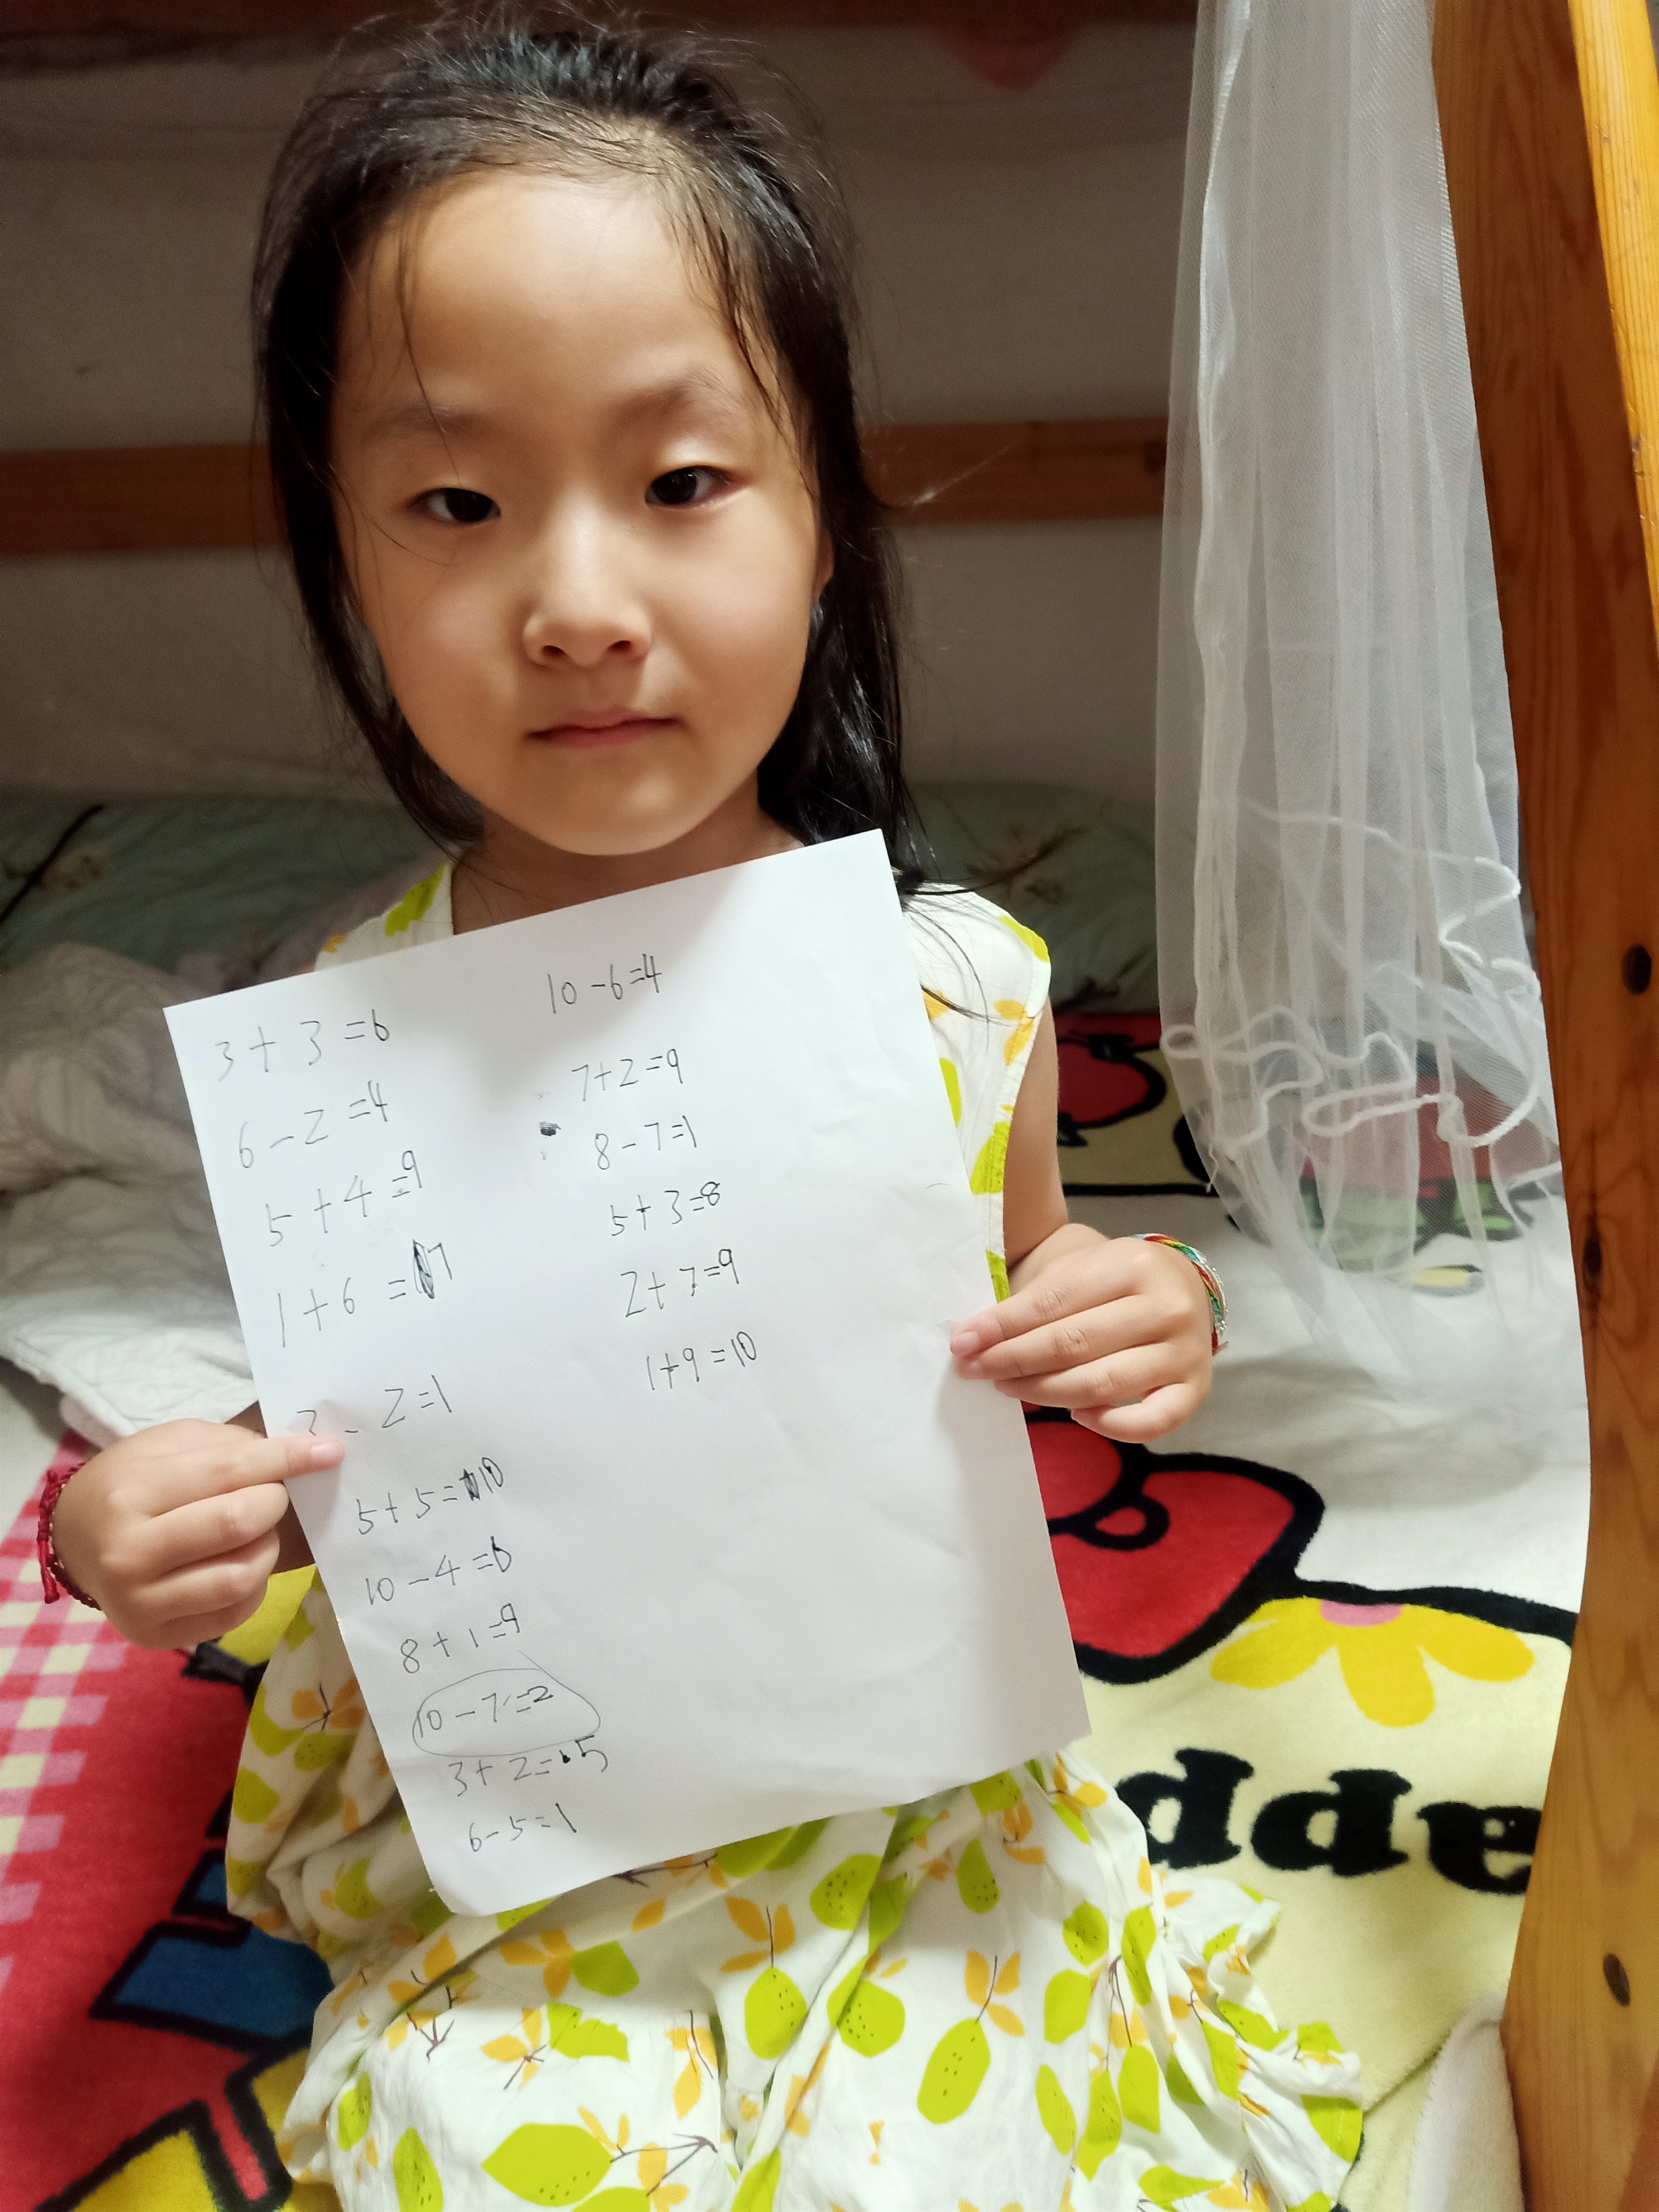 3+3=6
6-2=4
5+4=9
1+6=7
3-2=1
5+5=10
10-4=6
8+1=9
10-7=2
3+2=5
6-5=1
10-6=4
7+2=9
8-7=1
5+3=8
2+7=9
1+9=10